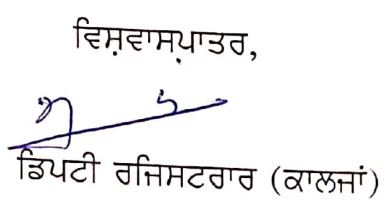 ਵਿਸ਼ਵਾਸਪਾਤਰ,
ਡਿਪਟੀ ਰਜਿਸਟਰਾਰ (ਕਾਲਜਾਂ)